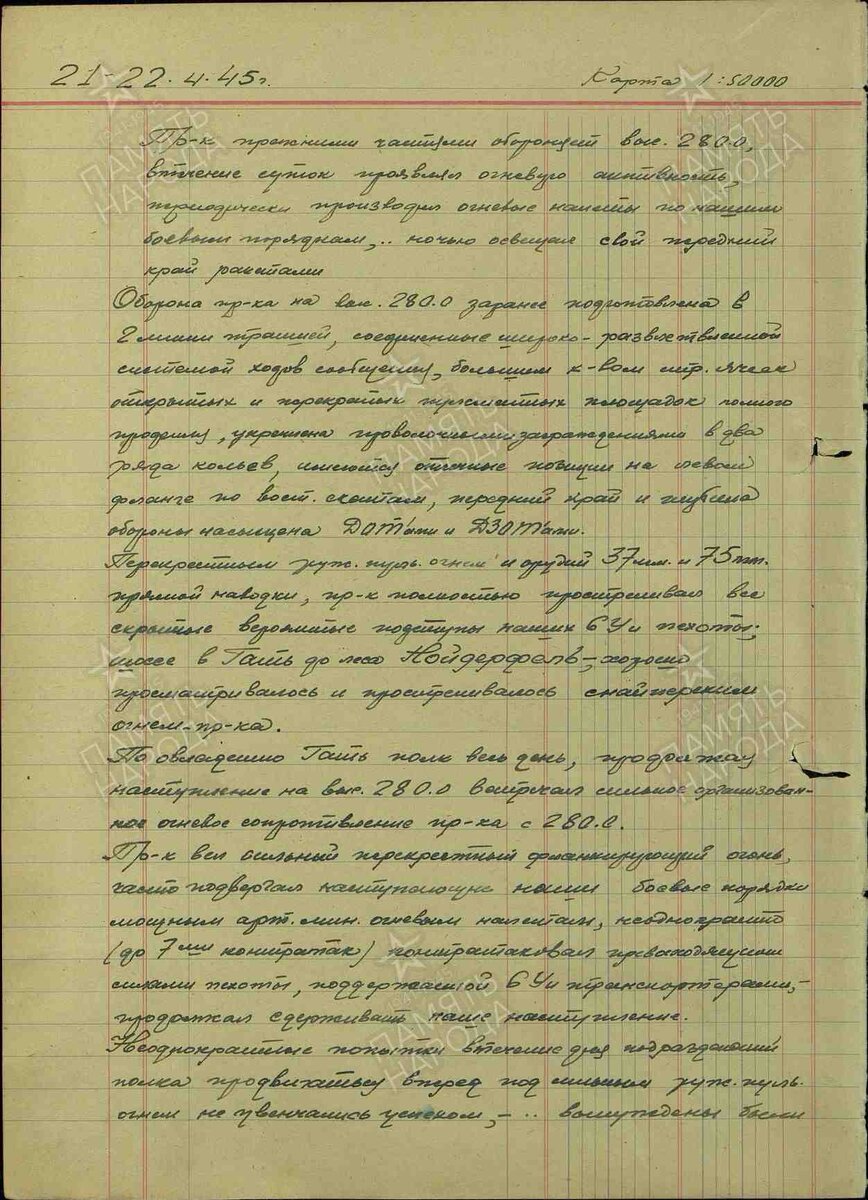 21-22.4.45г.
Карта 1:50000
Пр-к прежними частями обороняет выс. 280.0,
втечение суток проявлял огневую активность,
периодически производил огневые налеты по нашим
боевым порядкам, .. ночью освещал свой передний
край ракетами
Оборона пр-ка на выс. 280.0 заранее подготовлена в
2 линии траншей, соединенные широко-разветвленной
системой ходов сообщения, большим к-вом стр. ячеек
открытых и перекрытых площадок полного
профиля, укреплена проволочными заграждениями в два
ряда кольев, имеются позиции на левом
фланге по вост. скатам, передний край и глубина
обороны насыщена ДОТ'ами и ДЗОТ'ами.
Перекрестным руж. пул. огнем и орудий 37мм. и 75мм.
прямой наводки, пр-к полностью простреливал все
скрытые вероятные подступы наших БУ и пехоты;
шоссе в Гать до леса Нойдерфель, хорошо
просматривалось и простреливалось снайперским
огнем пр-ка.
По овладению Гать полк весь день, продолжая
наступление на выс. 280.0 встречал сильное организован-
ное огневое сопротивление пр-ка с 280.0.
Пр-к вел сильный перекрестный фланкирующий огонь,
часто подвергал наступающие наши боевые порядки
мощным арт. мин. огневым налетам, неоднократно
(до 7ми контратак) контратаковал превосходящими
силами пехоты, поддержанной БУ и транспортерами,-
продолжал сдерживать наше наступление.
Неоднократные попытки втечение дня подразделений
полка продвинуться вперед под сильным руж. пул.
огнем не увенчались успехом, - .. вынуждены были
ПАМЯТЬ
НАРОДА
ПАМЯТЬ
НАРОДА
ПАМЯТЬ
НАРОДА
ПАМЯТЬ
НАРОДА
ПАМЯТЬ
НАРОДА
ПАМЯТЬ
НАРОДА